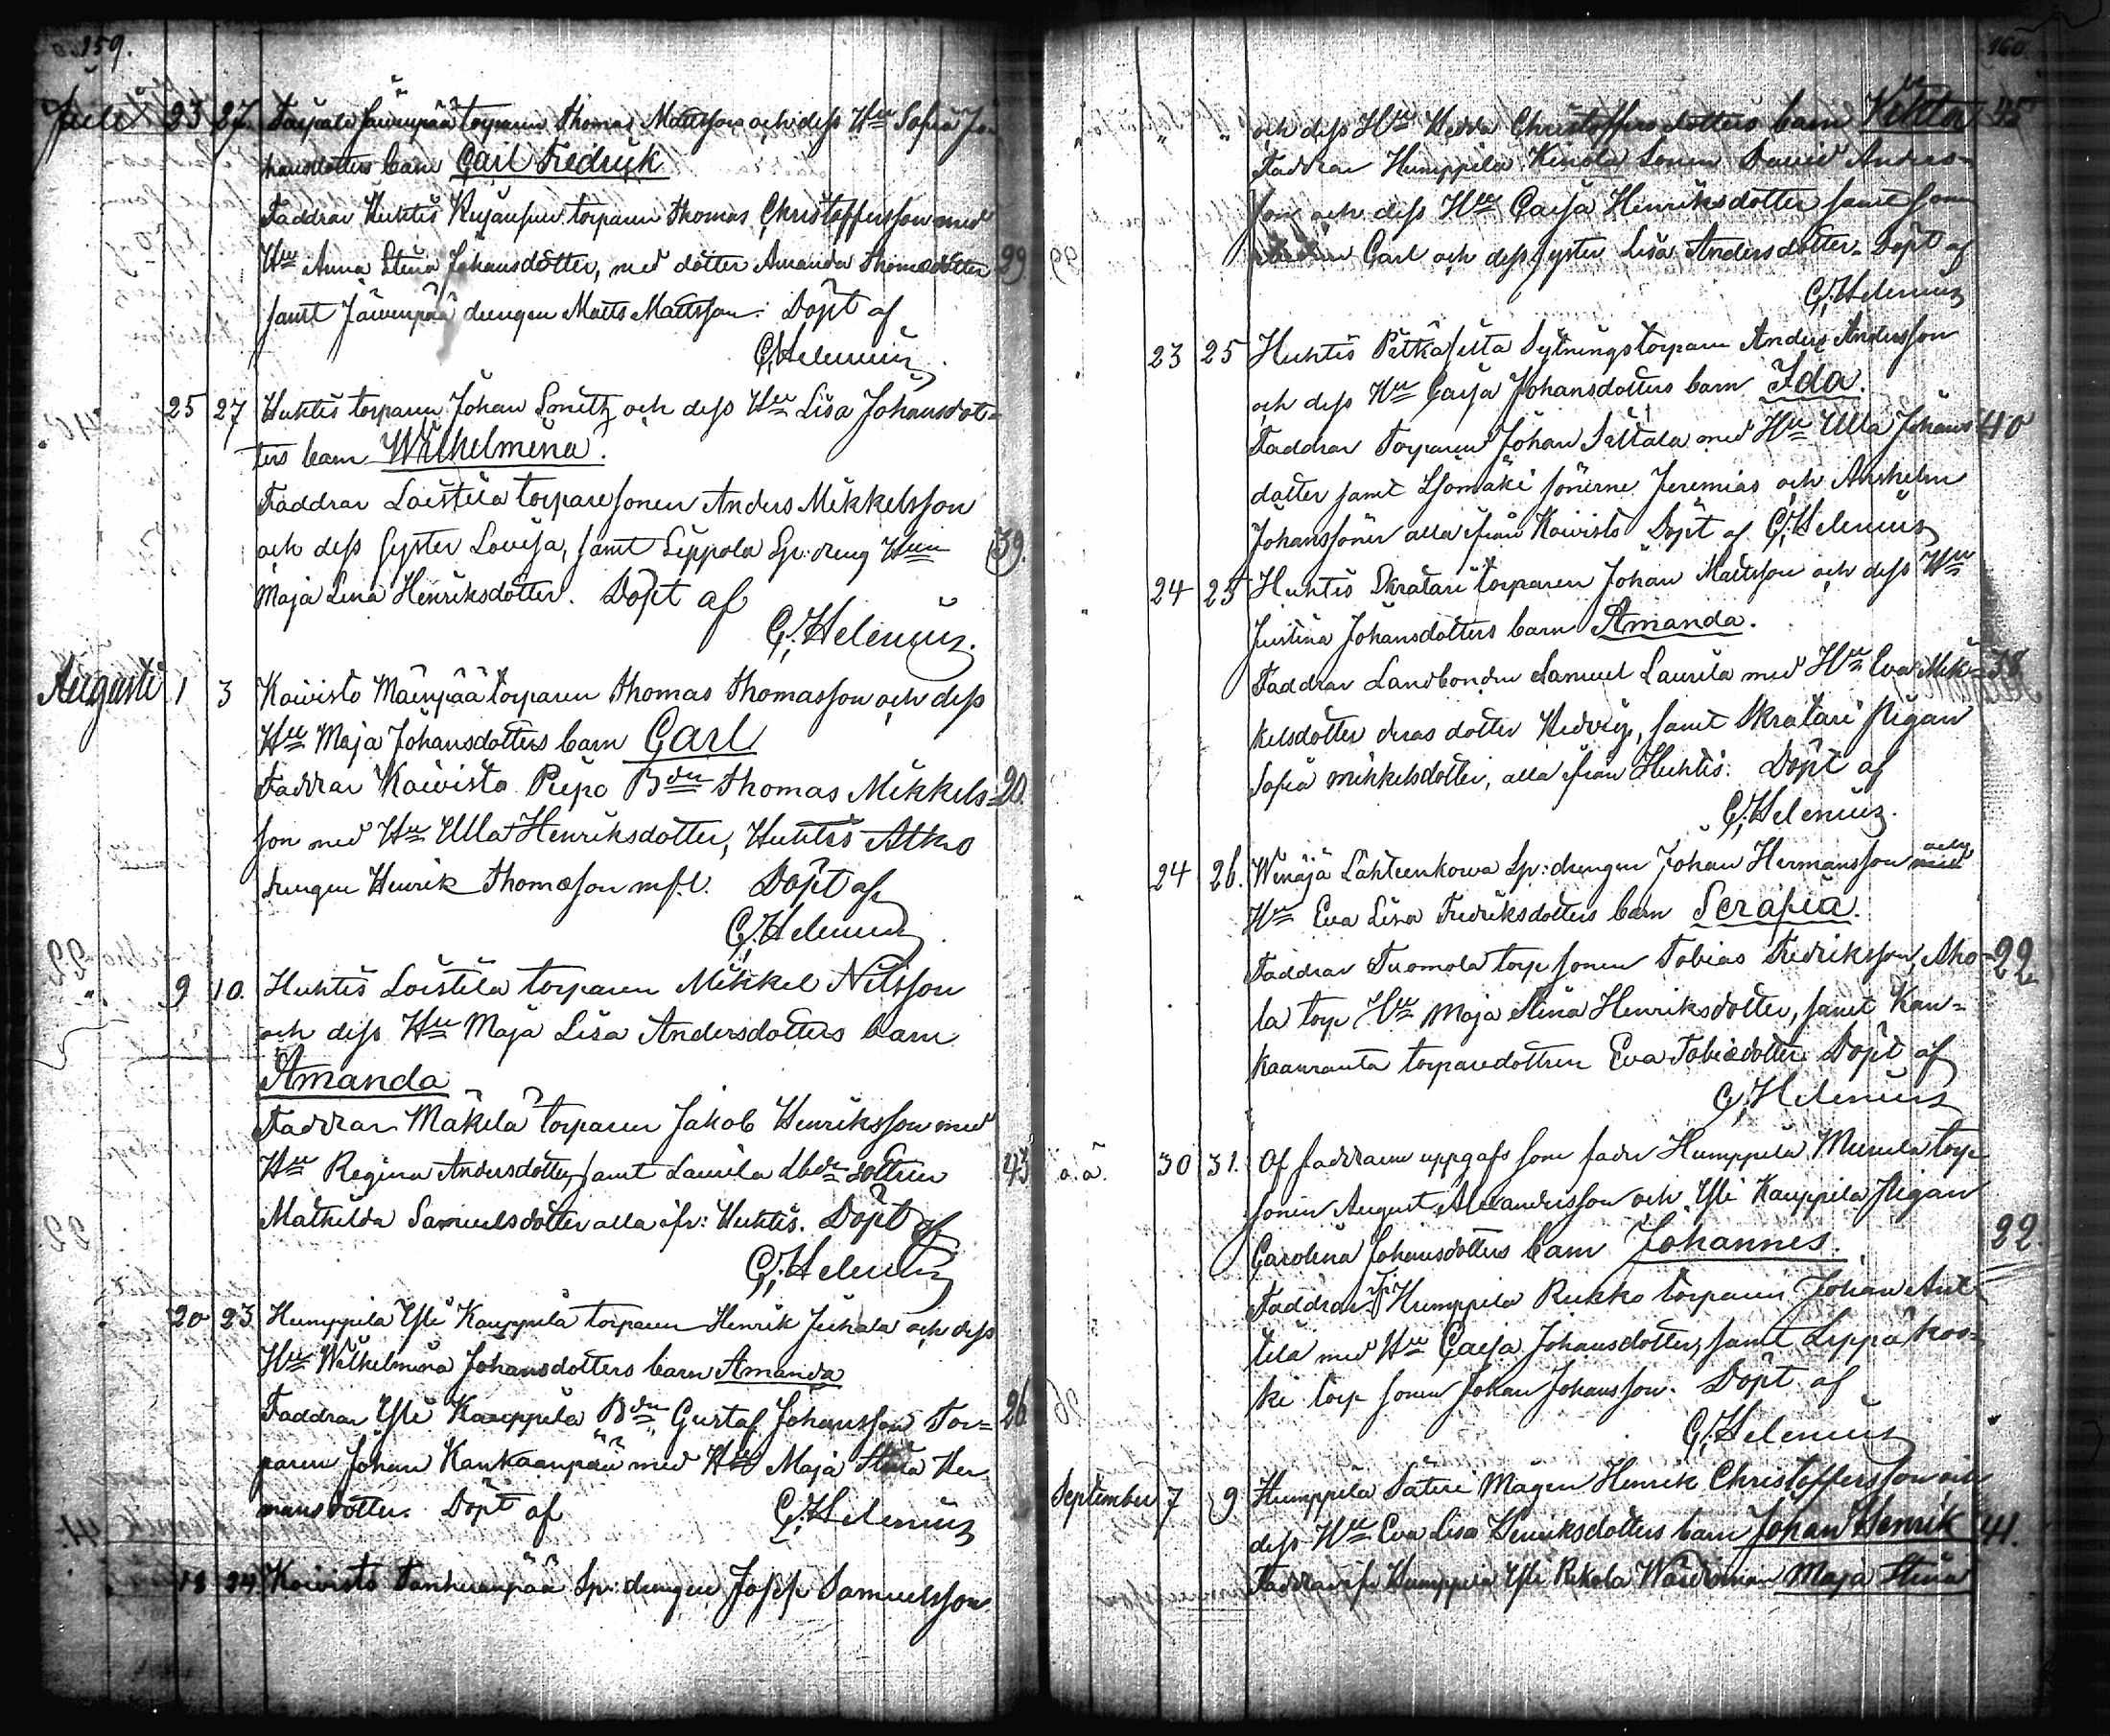 159.
Julii 23 27. Taipale Jäwenpää torparen Thomas Mattsson och dess Hu Sofia Jo-
hansdotters barn Carl Fredrik
Faddrar Huhtis Kujansuu torparen Thomas Christoffersson med
Hu Anna Stina Johansdotter, med dotter Amanda Thomædotter 29
samt Jäwenpää drengen Matts Mattsson. Döpt af
G. Helenius
25 27 Huhtis torparen Johan Lonitz och dess Hu Lisa Johansdot-
ters barn Wilhelmina.
Faddrar Loistila torparesonen Anders Mikkelsson
och dess syster Lovisa, samt Seppola Sp: dreng Hun 39.
Maja Lena Henriksdotter. Döpt af
G. Helenius.
Augusti 1 3 Koivisto Mäenpää torparen Thomas Thomasson och dess
Hu Maja Johansdotters barn Carl
Faddrar Koivisto Piipo Bdn Thomas Mikkels- 20.
son med Hu Ulla Henriksdotter, Huhtis Atko
drengen Henrik Thomæson m.fl. Döpt af
G. Helenius
9 10. Huhtis Loistila torparen Mikkel Nilsson
och dess Hu Maja Lisa Andersdotters barn
Amanda
Faddrar Mäkelä torparen Jakob Henriksson med
Hu Regina Andersdotter, samt Laurila Lbde dottren 43
Mathilda Samuelsdotter alla ifr: Huhtis. Döpt af
G. Helenius
20 23 Humppila Yli Kauppila torparen Henrik Juhala och dess
Hu Wilhelmina Johansdotters barn Amanda
Faddrar Yli Kauppila Bdn Gustaf Johansson Tor- 26
paren Johan Kankaanpää med Hu Maja Stina Her
mansdotter. Döpt af G. Helenius
18 24. Koivisto Tanhuanpää Sp: drengen Josef Samuelsson
160.
och dess Hu Hedda Christoffersdotters barn Viktor 35
Faddrar Humppila Kinola Sonen David Anders-
son och dess Hu Caisa Henriksdotter samt
Carl och dess syster Lisa Andersdotter. Döpt af
G. Helenius
23 25 Huhtis Pitkäsilta Sytningstorpare Anders Andersson
och dess Hu Caisa Johansdotters barn Ida.
Faddrar Torparen Johan Siltala med Hu Ulla Johans 40
dotter samt Isomäki sönerne Jeremias och Anshelm
Johanssöner alla ifrån Koivisto Döpt af G. Helenius
24 25 Huhtis Skratari torparen Johan Mattsson och dess Hu
Justina Johansdotters barn Amanda.
Faddrar Landbonden Samuel Laurila med Hu Eva Mik- 38
kelsdotter deras dotter Hedvig, samt Skratari pigan
Sofia Mikkelsdotter, alla ifrån Huhtis. Döpt af
G. Helenius.
24 26. Wenäjä Lähteenkorva Sp: drengen Johan Hermansson och
Hu Eva Lisa Fredriksdotters barn Serafia.
Faddrar Tuomola torp sonen Tobias Fredriksson, Aho- 22
la torp Hu Maja Stina Henriksdotter, samt Kan-
kaanranta torparedottren Eva Tobiædotter Döpt af
G. Helenius
o.ä. 30 31. Af faddrarne uppgafs som fader Humppila Murula torp
sonen August Alexandersson och Yli Kauppila pigan
Carolina Johansdotters barn Johannes. 22.
Faddrar fr Humppila Rukko torparen Johan Ant-
tila med Hu Caisa Johansdotter, samt Leppäkos-
ki torp sonen Johan Johansson. Döpt af
G. Helenius
September 7 9 Humppila Säteri Mågen Henrik Christoffersson och
dess Hu Eva Lisa Henriksdotters barn Johan Henrik 41.
Faddrar ifr Humppila Yli Rekola Wärdinnan Maja Stina